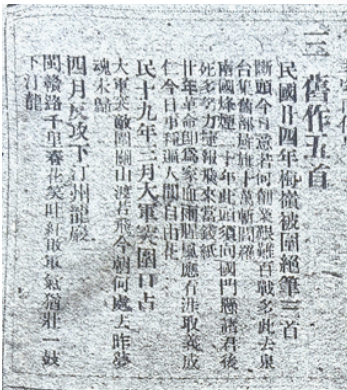 三 舊作五首
民國廿四年梅嶺被圍絕筆三首
斷頭今日意若何創業艱難百戰多此去泉
台集舊部旌旗十萬斬閻羅
南國烽煙二十年此頭須向國門懸諸君後
死多努力捷報飛來當錢紙
廿年革命卽爲家血雨腥風應有涯取義成
仁今日事種遍人間自由花
民十九年三月大軍突圍口占
大軍突敵圍關山渡若飛今朝何處去昨夢
魂未歸
四月反攻下汀州龍巖
閩贛路千里春花笑吐紅敗軍氣猶壯一鼓
下汀龍